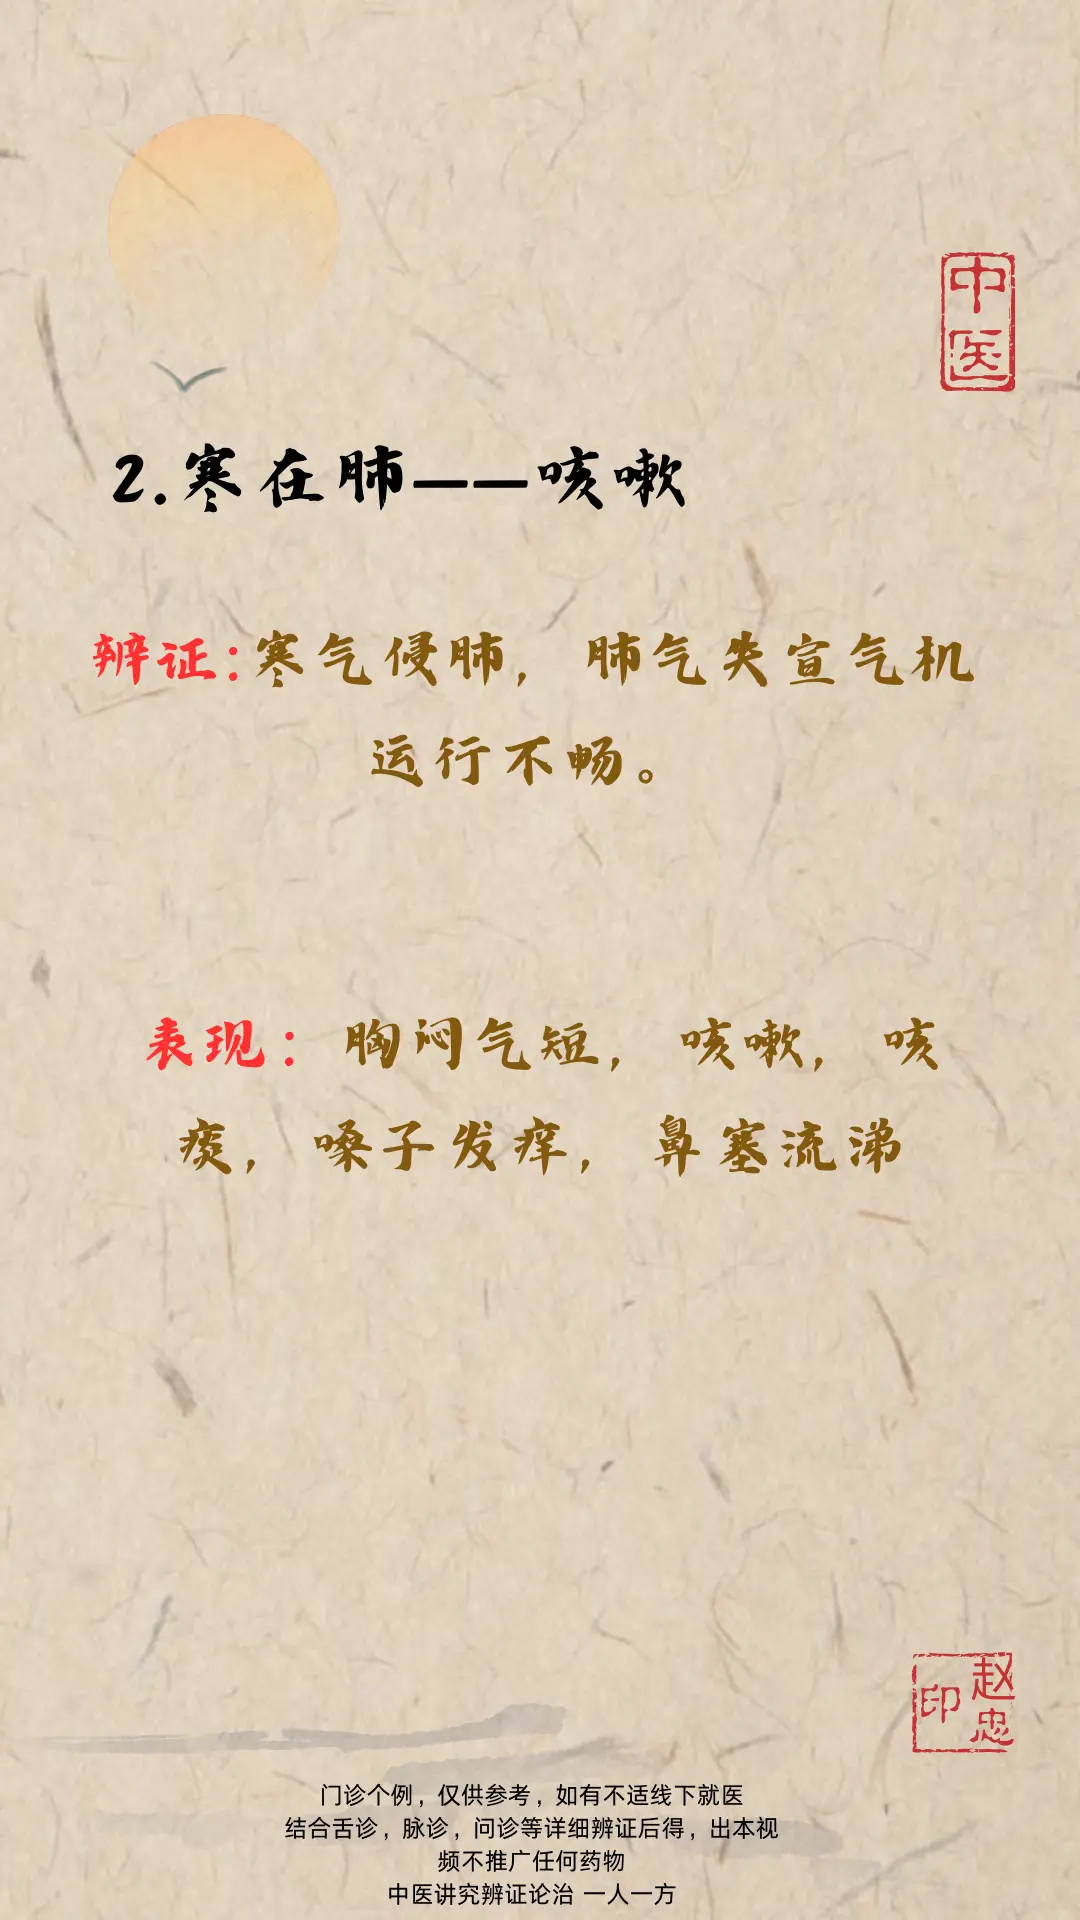 中
医
2.寒在肺——咳嗽
辨证:寒气侵肺，肺气失宣气机
运行不畅。
表现：胸闷气短，咳嗽，咳
痰，嗓子发痒，鼻塞流涕
赵忠
印
门诊个例，仅供参考，如有不适线下就医
结合舌诊，脉诊，问诊等详细辨证后得，出本视
频不推广任何药物
中医讲究辨证论治 一人一方